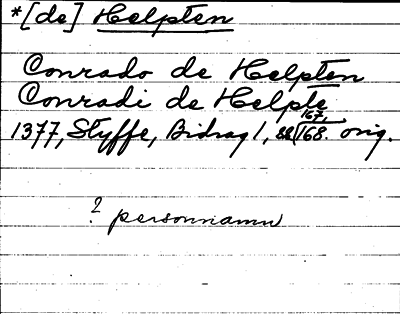 *[de] Helpten
Conrado de Helpten
Conradi de Helpte
1377, Styffe, Bidrag 1, 167, 168. orig.
? personnamn